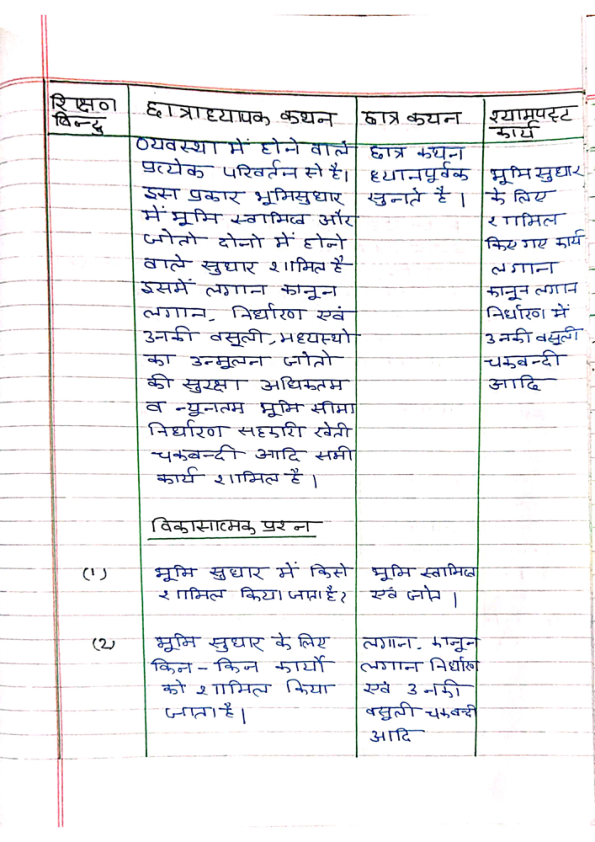 शिक्षण
बिन्दु
छात्राध्यापक कथन
छात्र कथन
श्यामपट्ट
कार्य
व्यवस्था में होने वाले
प्रत्येक परिवर्तन से है।
इस प्रकार भूमिसुधार
में भूमि स्वामित्व और
जोतो दोनो में होने
वाले सुधार शामिल है
इसमें लगान कानून
लगान, निर्धारण एवं
उनकी वसूली, मध्यस्थो
का उन्मूलन जोतो
की सुरक्षा अधिकतम
व न्यूनतम भूमि सीमा
निर्धारण सहकारी खेती
चकबन्दी आदि सभी
कार्य शामिल है।
छात्र कथन
ध्यानपूर्वक
सुनते है।
भूमि सुधार
के लिए
शामिल
किए गए कार्य
लगान
कानून लगान
निर्धारण में
उनकी वसूली
चकबन्दी
आदि
विकासात्मक प्रश्न
(1)
भूमि सुधार में किसे
शामिल किया जाता है?
भूमि स्वामित्व
एवं जोत।
(2)
भूमि सुधार के लिए
किन-किन कार्यो
को शामिल किया
जाता है।
लगान. कानून
लगान निर्धारण
एवं उनकी
वसूली चकबन्दी
आदि